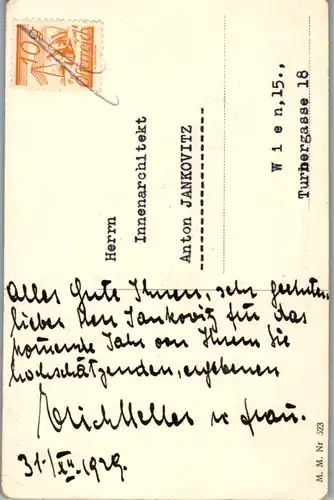 10
Österreich
Herrn
Innenarchitekt
Anton JANKOVITZ
Wien, 15.,
Turnergasse 18
Alles Gute Ihnen, sehr geehrter
lieber Herr Jankovitz für das
kommende Jahr von Ihrem Sie
hochschätzenden, ergebenen
Erich Meller u Frau.
31./XII.1929.
M. M. Nr 523